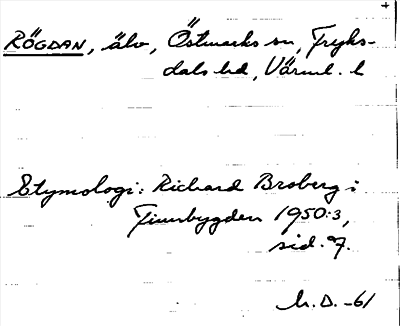 RÖGDAN, älv, Östmarks sn, Fryks-
dals hd, Värml. l
Etymologi: Richard Broberg i
Finnbygden 1950:3,
sid. 7.
M.D. -61